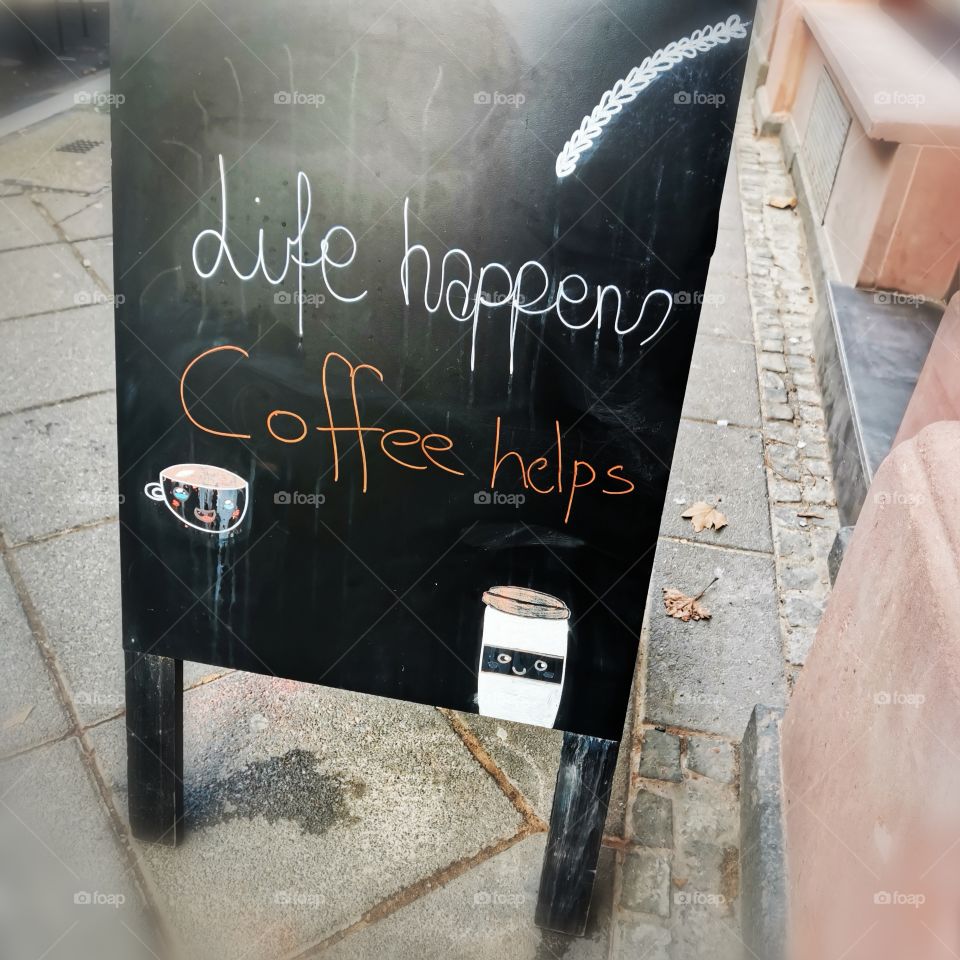 Life happens
Coffee helps
foap